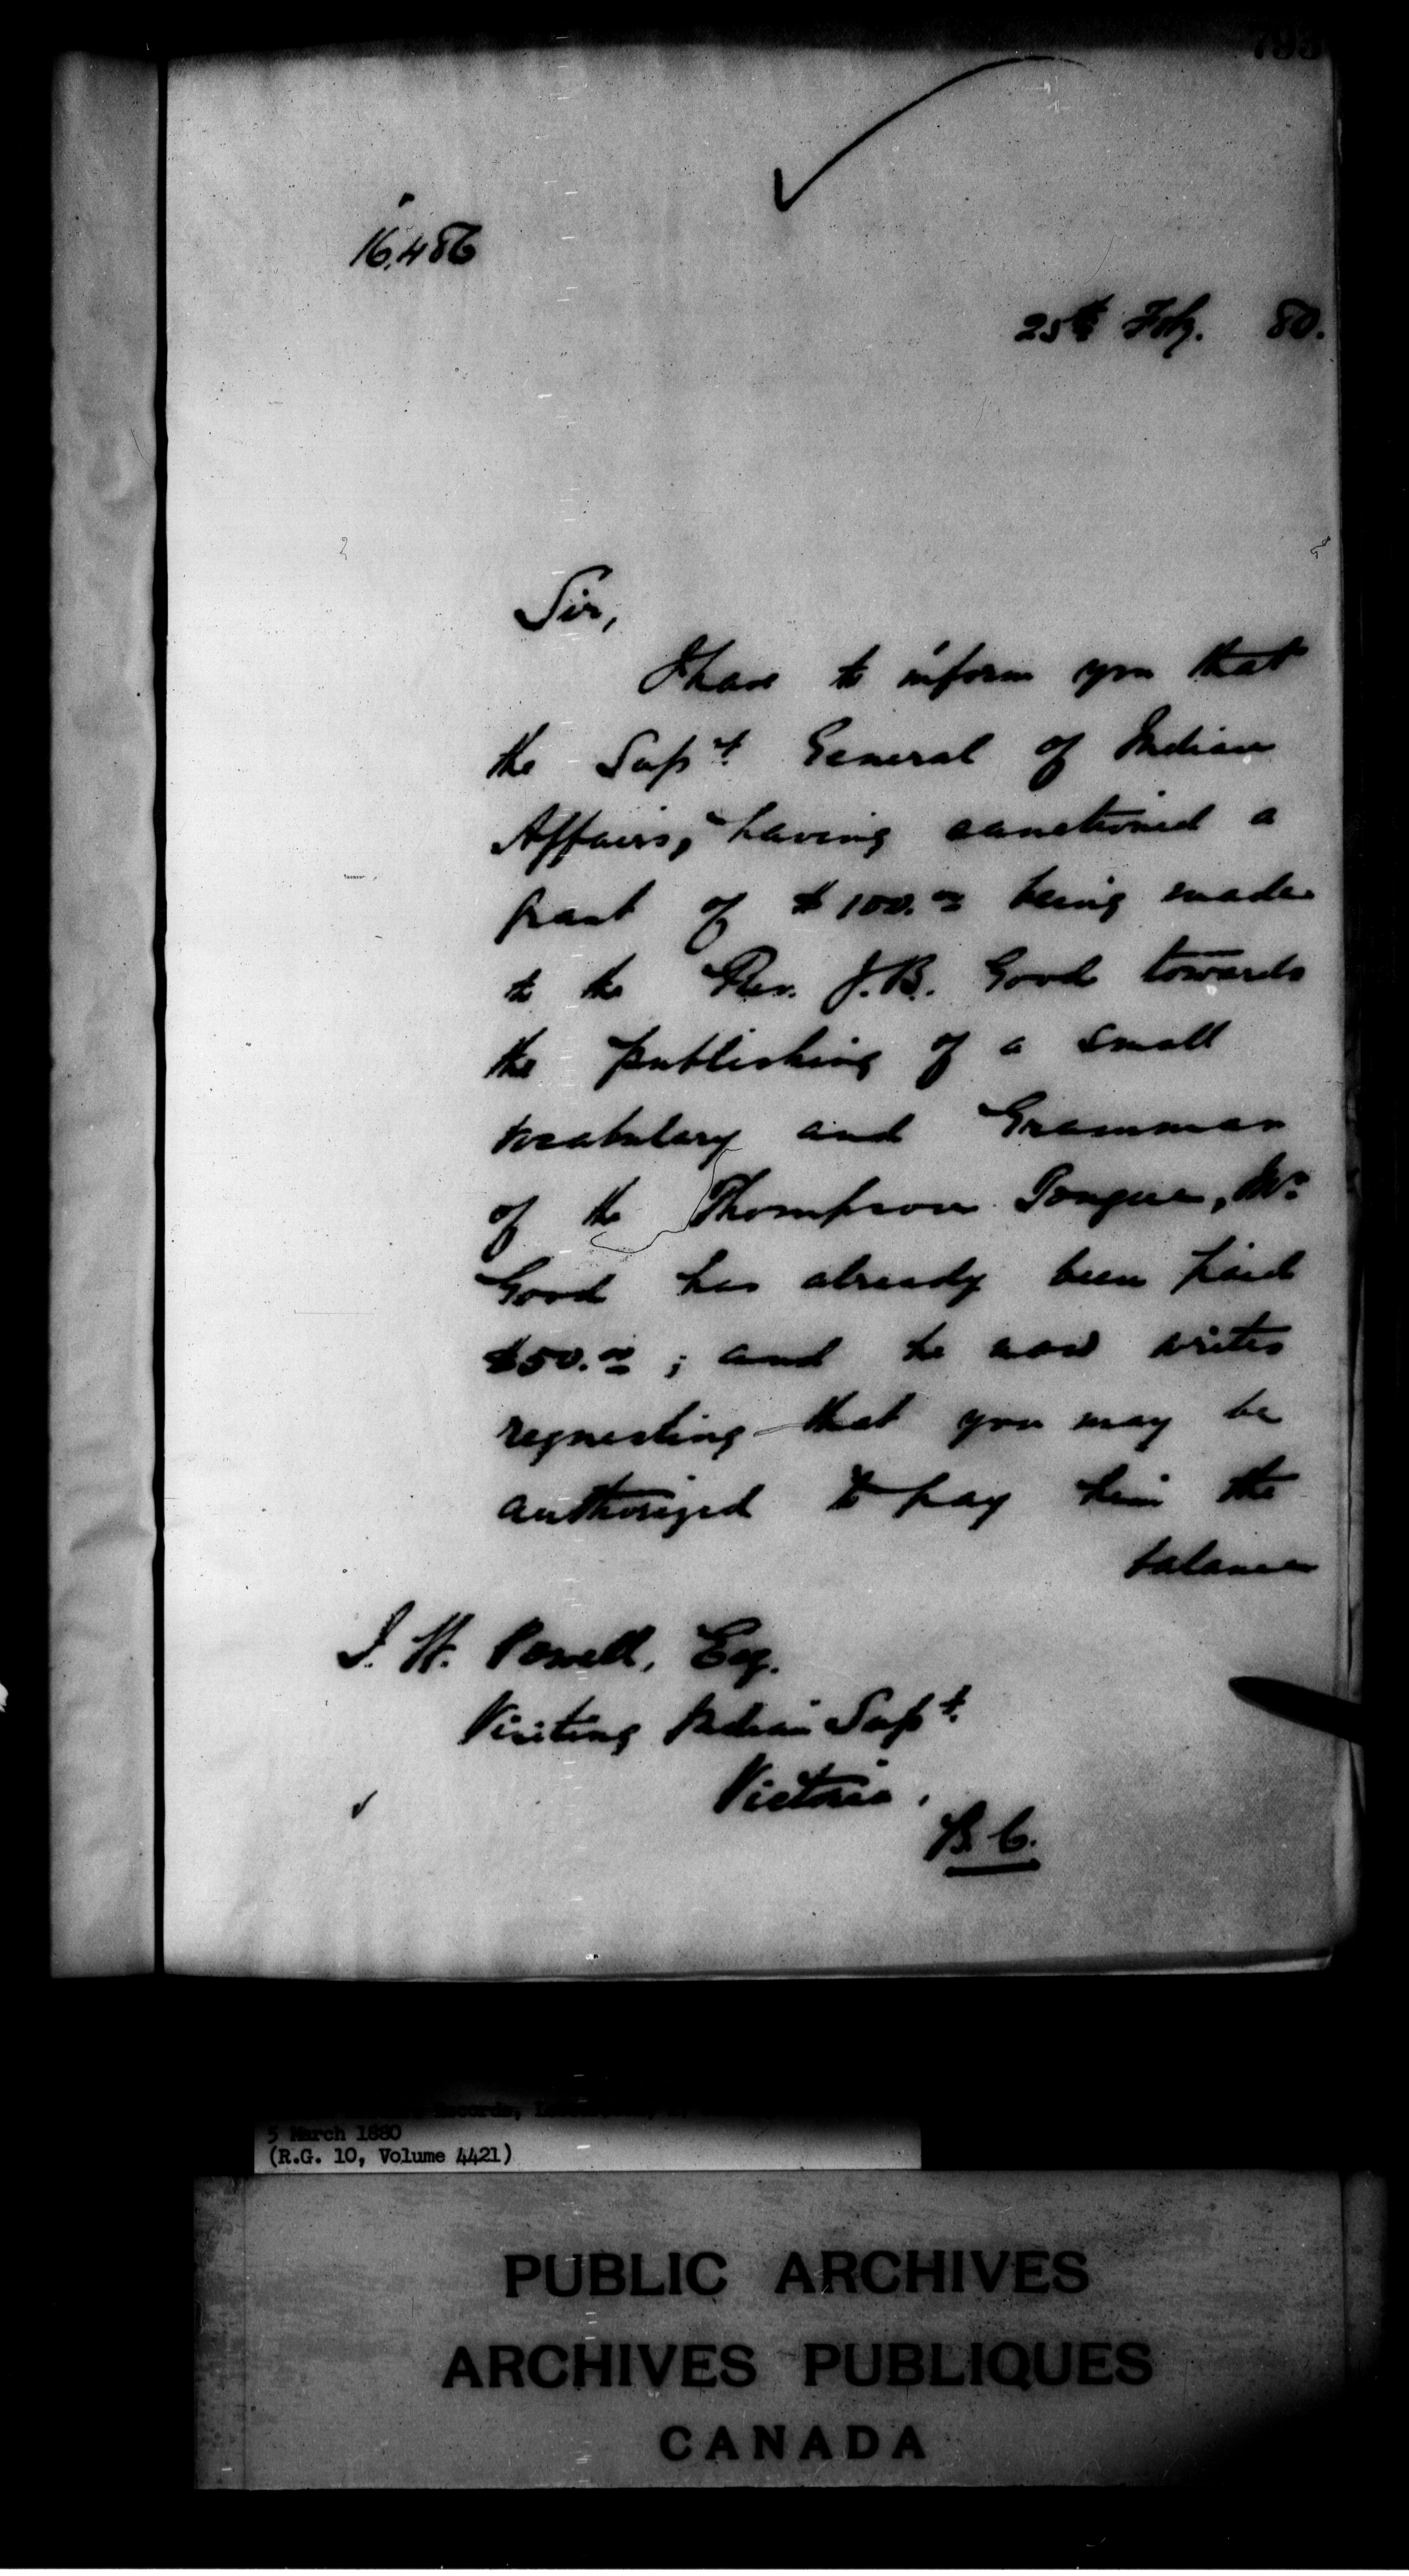 793
16,486
25th Feby. 80.
Sir,
I have to inform you that
the Supt. General of Indian
Affairs, having sanctioned a
grant of $100.00 being made
to the Rev. J.B. Good towards
the publishing of a small
vocabulary and Grammar
of the Thompson Tongue, Mr.
Good has already been paid
$50.00 ; and he now writes
requesting that you may be
authorized to pay him the
balance
I. W. Powell, Esq.
Visiting Indian Supt.
Victoria,
B.C.
Records,
5 March 1880
(R.G. 10, Volume 4421)
PUBLIC ARCHIVES
ARCHIVES PUBLIQUES
CANADA